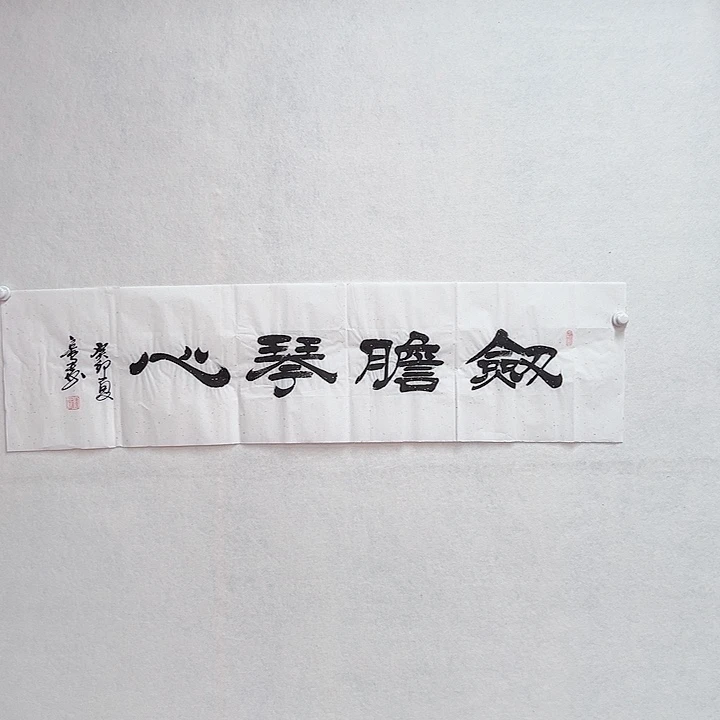 劔膽琴心
癸卯夏